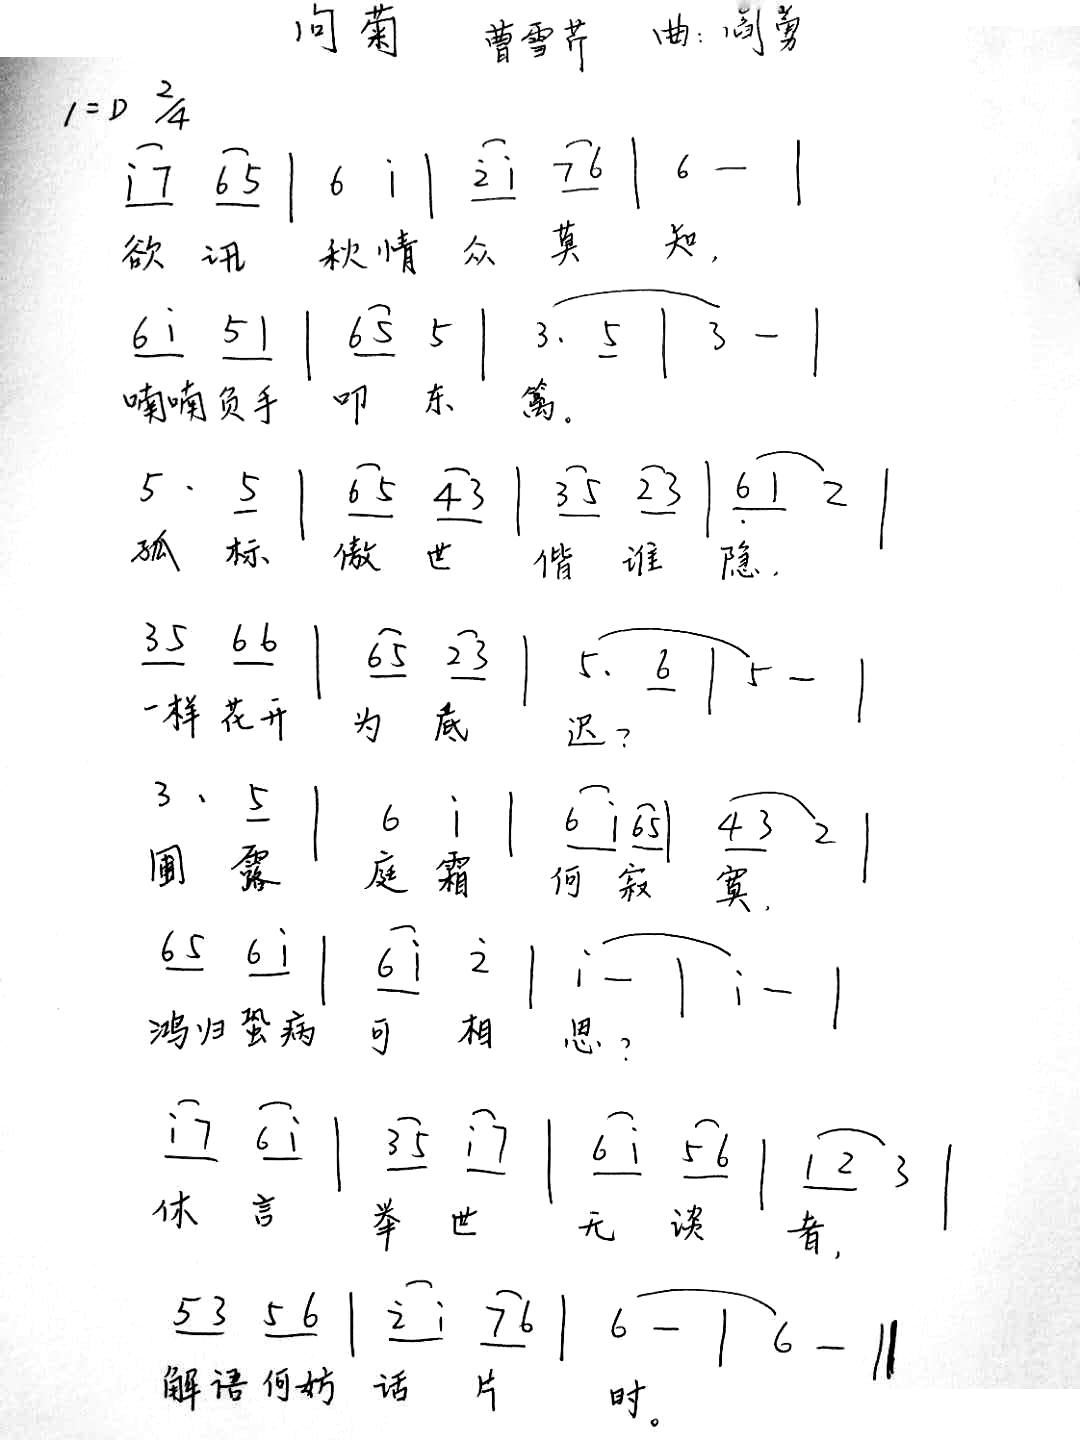 问菊 曹雪芹 曲:阎勇
1=D 2/4
i7 65 | 6 i | 2i 76 | 6 — |
欲讯 秋情 众莫 知,
6i 51 | 65 5 | 3. 5 | 3 — |
喃喃负手 叩东 篱。
5. 5 | 65 43 | 35 23 | 61 2 |
孤标 傲世 偕谁 隐,
35 66 | 65 23 | 5. 6 | 5 — |
一样花开 为底 迟?
3. 5 | 6 i | 6i 65 | 43 2 |
圃露 庭霜 何寂 寞,
65 6i | 6i 2 | i — | i — |
鸿归蛩病 可相 思?
i7 6i | 35 i7 | 6i 56 | 12 3 |
休言 举世 无谈 者,
53 56 | 2i 76 | 6 — | 6 — ||
解语何妨 话片 时。